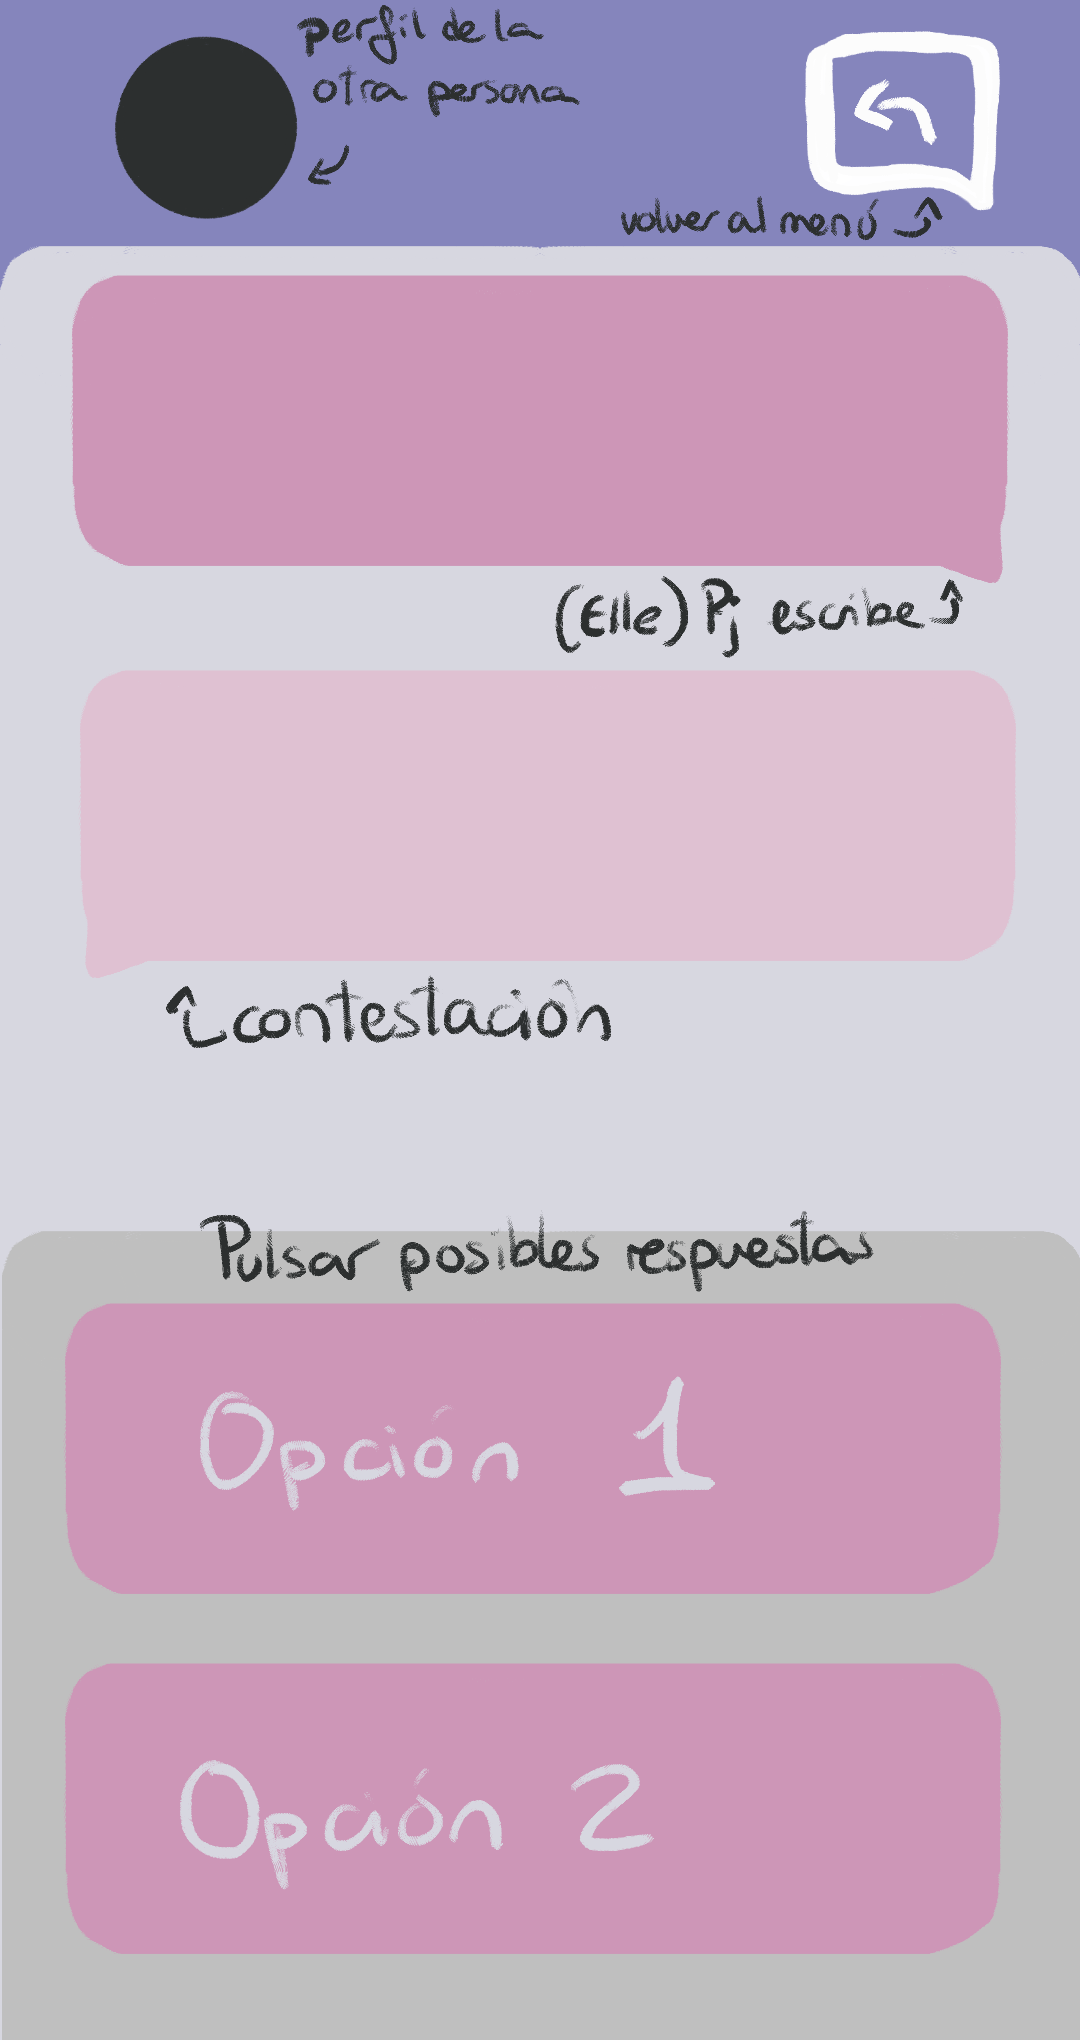 perfil de la
otra persona
volver al menú
(Elle) Pj escribe
contestación
Pulsar posibles respuestas
Opción 1
Opción 2